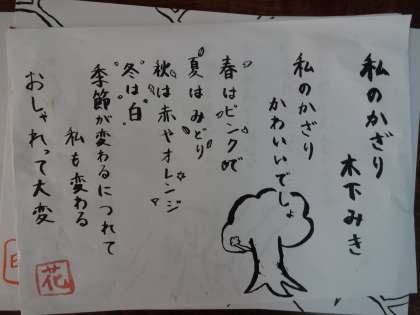 私のかざり
木下みき
私のかざり
かわいいでしょ
春はピンクで
夏はみどり
秋は赤やオレンジ
冬は白
季節が変わるにつれて
私も変わる
おしゃれって大変
花